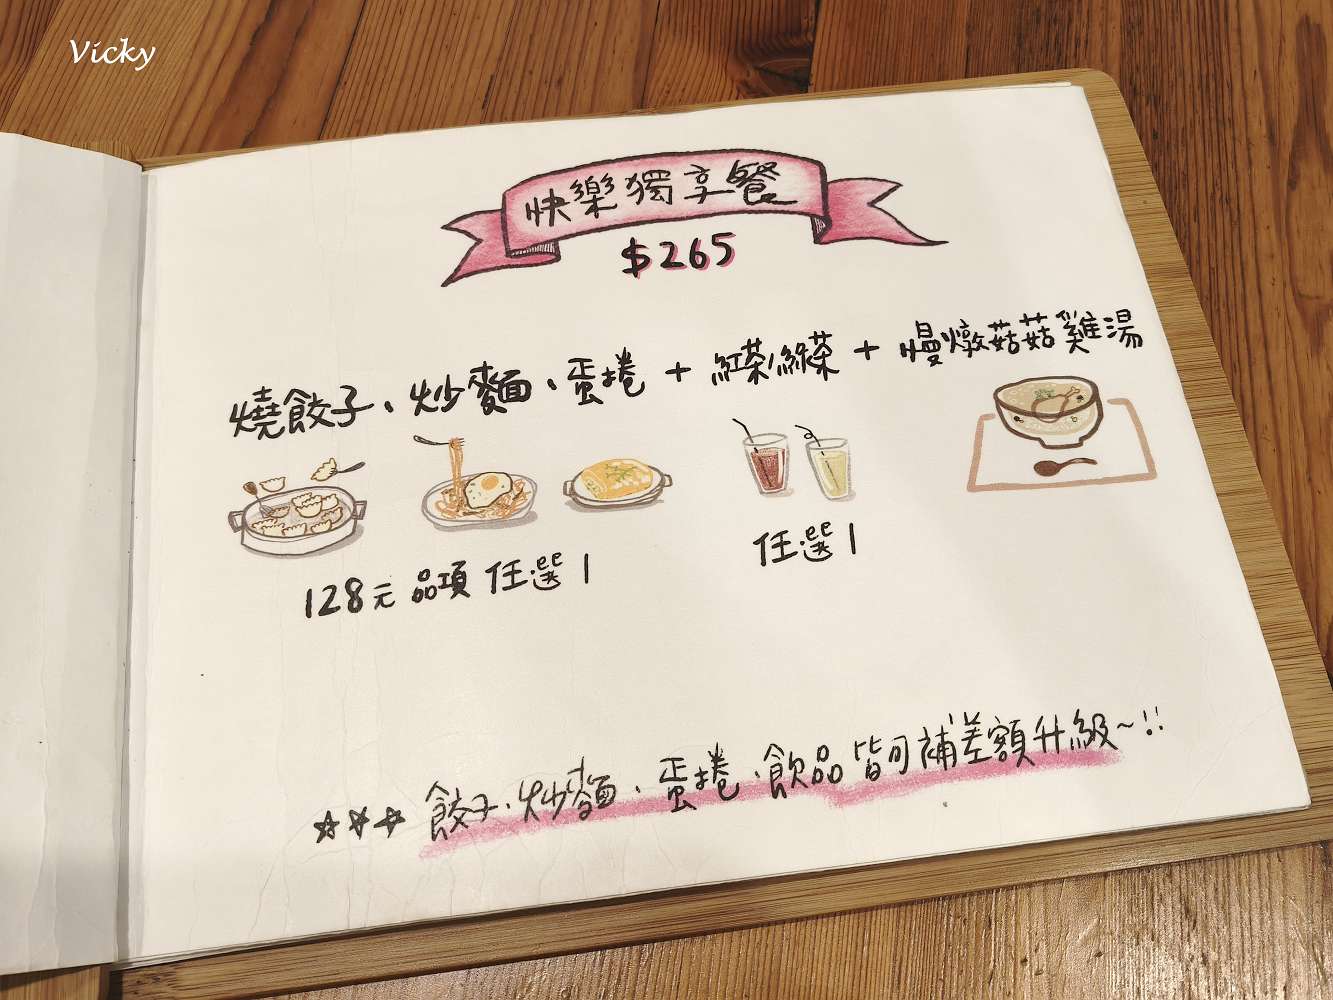 Vicky
快樂獨享餐
$265
燒餃子、炒麵、蛋捲 + 紅茶/綠茶 + 慢燉菇菇雞湯
128元 品項 任選1
任選1
☆☆☆ 餃子、炒麵、蛋捲、飲品皆可補差額升級~!!